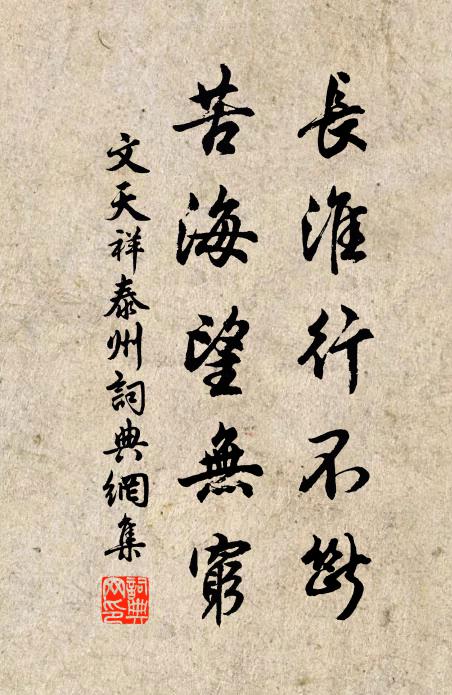 長淮行不斷
苦海望無窮
文天祥泰州詞典網集
詞典网印